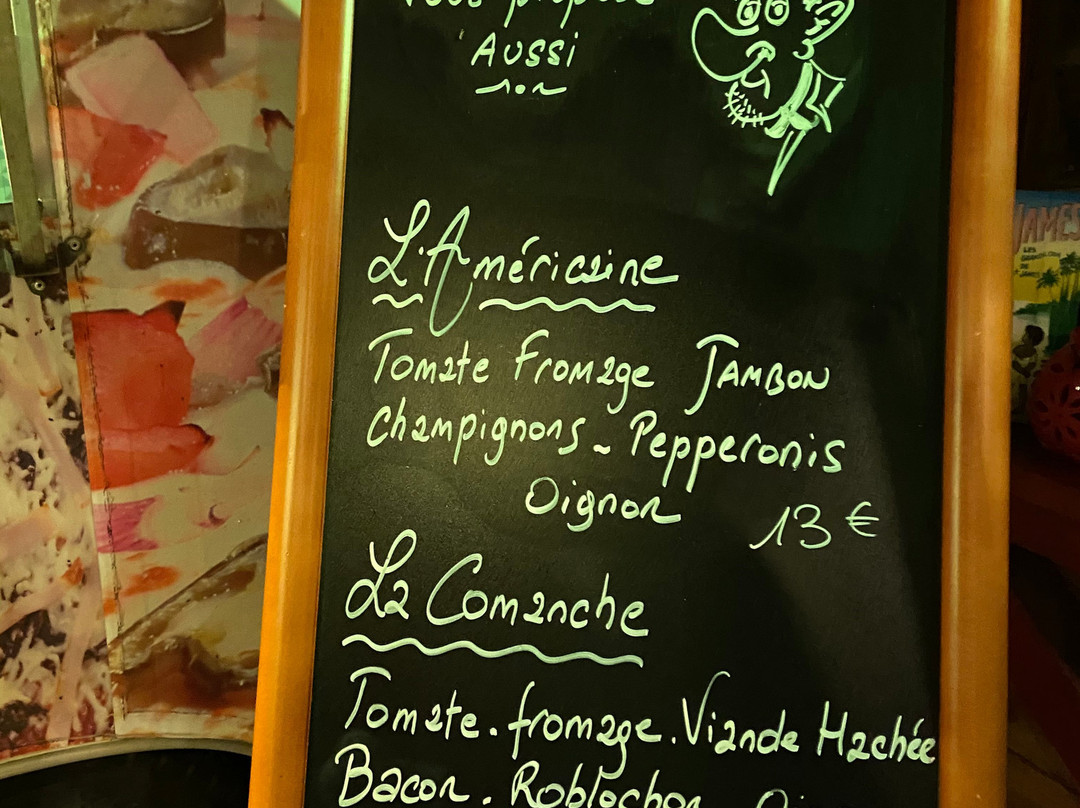 Aussi
L'Américaine
Tomate Fromage Jambon
Champignons - Pepperonis
Oignon 13 €
La Comanche
Tomate . fromage . Viande Hachée
Bacon . Roblochon